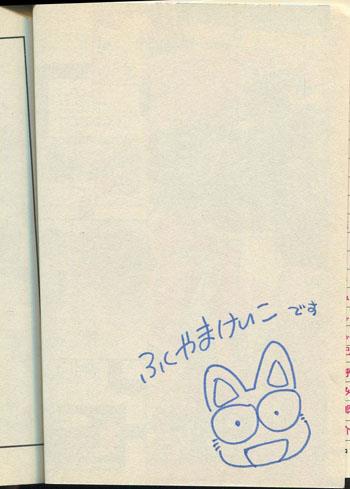 ふくやまけいこ です